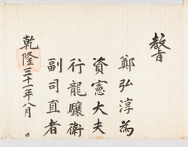 教旨
鄭弘淳為
資憲大夫
行龍驤衛
副司直者
乾隆三十一年八月